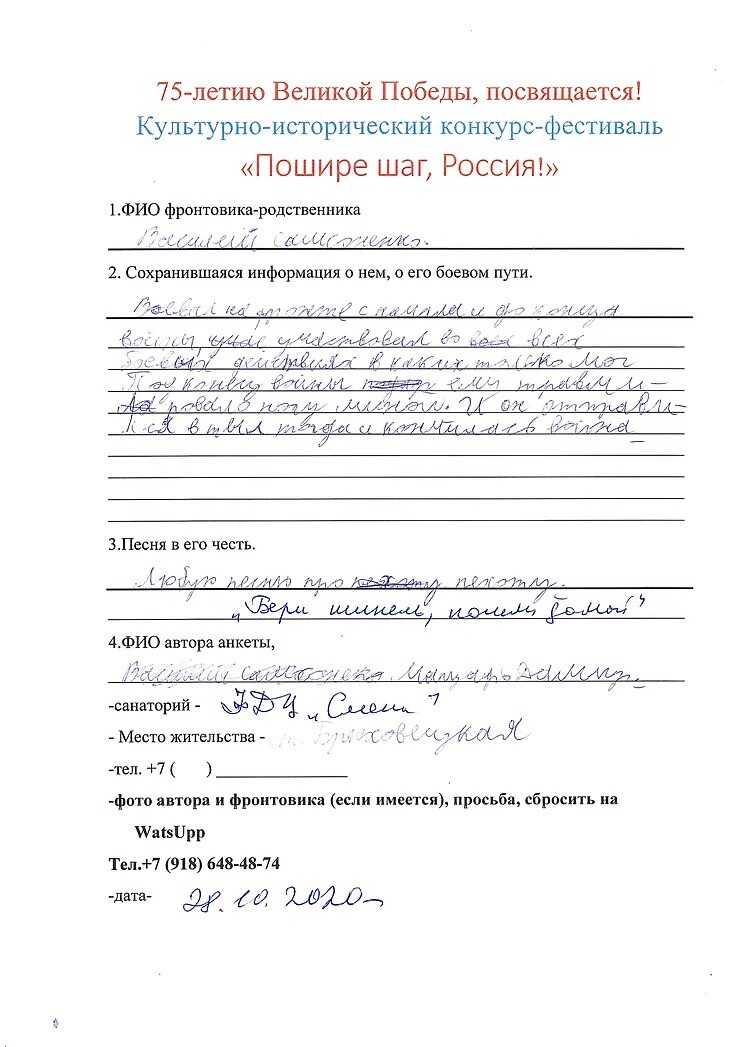 75-летию Великой Победы, посвящается!
Культурно-исторический конкурс-фестиваль
«Пошире шаг, Россия!»
1.ФИО фронтовика-родственника
Василий Самсоненко.
2. Сохранившаяся информация о нем, о его боевом пути.
Воевал на фронте с начала и до конца
войны, участвовал во всех
боевых действиях в каких только мог
Под конец войны ему травми-
ровало ногу миной. И он отправи-
лся в тыл тогда и кончилась война
3.Песня в его честь.
Любую песню про пехоту.
„Бери шинель, пошли домой"
4.ФИО автора анкеты,
-санаторий - „Смена"
- Место жительства - ст. Брюховецкая
-тел. +7 (      ) _______________
-фото автора и фронтовика (если имеется), просьба, сбросить на
WatsUpp
Тел.+7 (918) 648-48-74
-дата- 28.10.2020